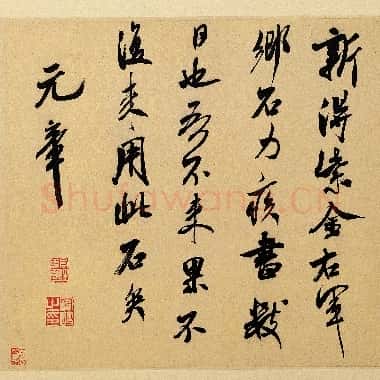 新得紫金右軍
鄉石力疾書數
日也吾不來果不
復來用此石矣
元章
Shufawang.cn